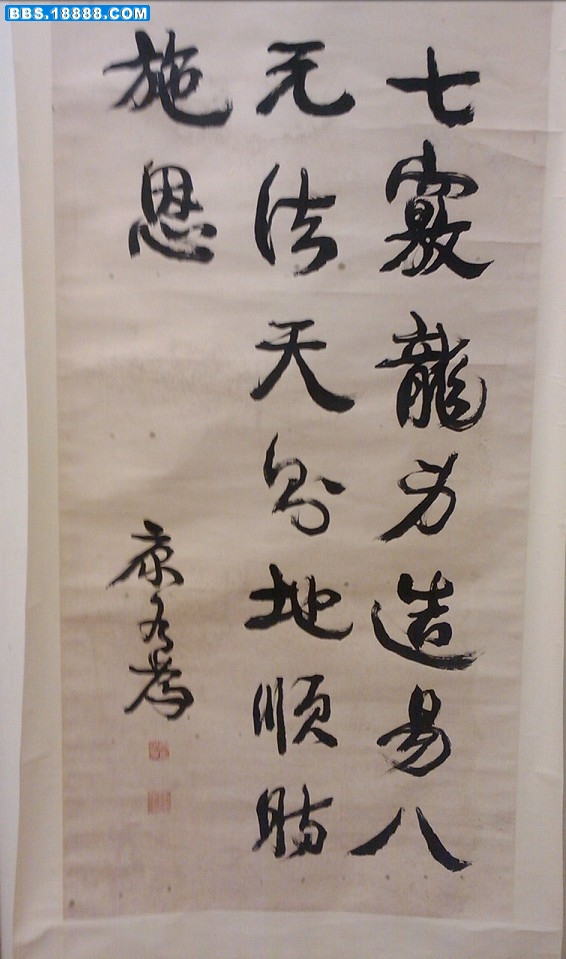 BBS.18888.COM
七竅龍身造易八
元法天則地順時
施恩
康有為